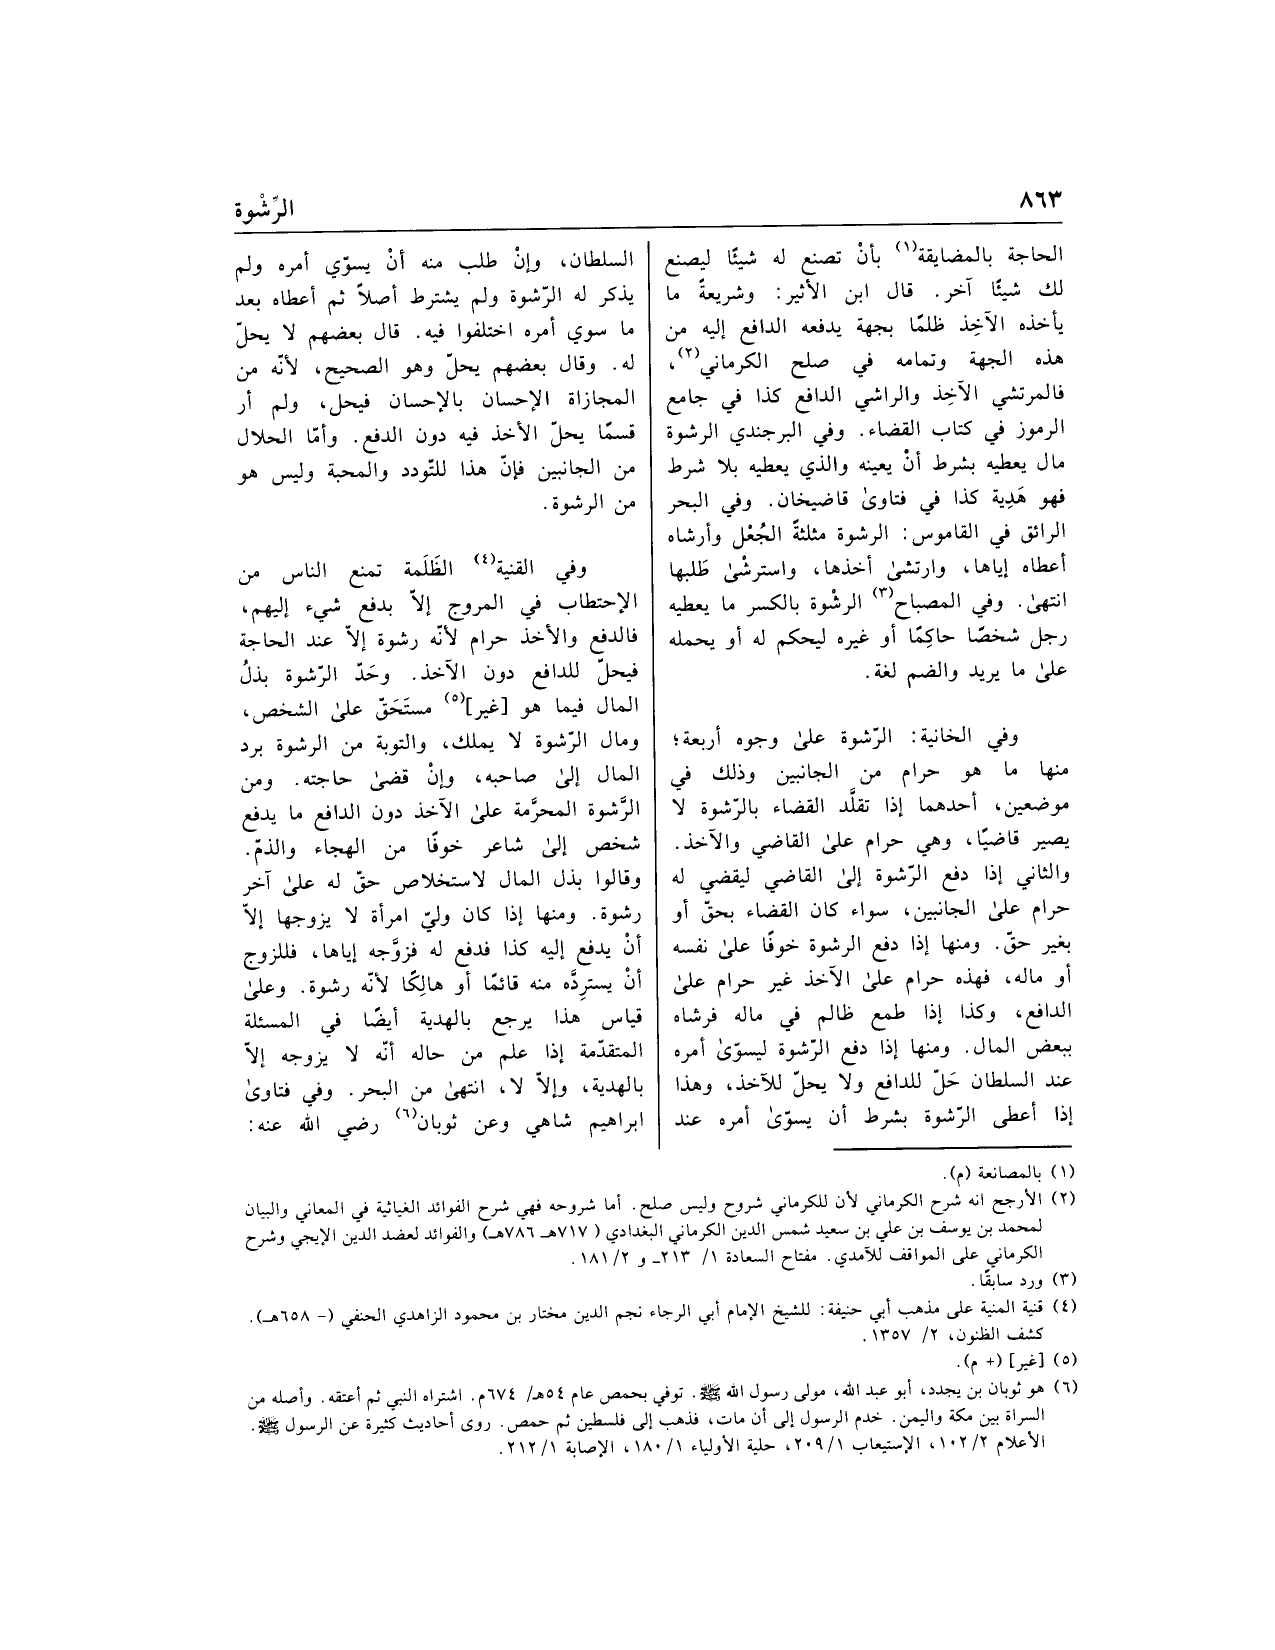 ٨٦٣
الرِّشْوة
الحاجة بالمضايقة(١) بأنْ تصنع له شيئًا ليصنع
لك شيئًا آخر. قال ابن الأثير: وشريعةً ما
يأخذه الآخِذ ظلمًا بجهة يدفعه الدافع إليه من
هذه الجهة وتمامه في صلح الكرماني(٢)،
فالمرتشي الآخِذ والراشي الدافع كذا في جامع
الرموز في كتاب القضاء. وفي البرجندي الرشوة
مال يعطيه بشرط أنْ يعينه والذي يعطيه بلا شرط
فهو هَدِية كذا في فتاوىٰ قاضيخان. وفي البحر
الرائق في القاموس: الرشوة مثلثةً الجُعْل وأرشاه
أعطاه إياها، وارتشىٰ أخذها، واسترشْىٰ طَلبها
انتهىٰ. وفي المصباح(٣) الرشْوة بالكسر ما يعطيه
رجل شخصًا حاكِمًا أو غيره ليحكم له أو يحمله
علىٰ ما يريد والضم لغة.
وفي الخانية: الرّشوة علىٰ وجوه أربعة؛
منها ما هو حرام من الجانبين وذلك في
موضعين، أحدهما إذا تقلَّد القضاء بالرّشوة لا
يصير قاضيًا، وهي حرام علىٰ القاضي والآخذ.
والثاني إذا دفع الرّشوة إلىٰ القاضي ليقضي له
حرام علىٰ الجانبين، سواء كان القضاء بحقّ أو
بغير حقّ. ومنها إذا دفع الرشوة خوفًا علىٰ نفسه
أو ماله، فهذه حرام علىٰ الآخذ غير حرام علىٰ
الدافع، وكذا إذا طمع ظالم في ماله فرشاه
ببعض المال. ومنها إذا دفع الرّشوة ليسوّىٰ أمره
عند السلطان حَلّ للدافع ولا يحلّ للآخذ، وهذا
إذا أعطى الرّشوة بشرط أن يسوّىٰ أمره عند
السلطان، وإنْ طلب منه أنْ يسوّي أمره ولم
يذكر له الرّشوة ولم يشترط أصلاً ثم أعطاه بعد
ما سوي أمره اختلفوا فيه. قال بعضهم لا يحلّ
له. وقال بعضهم يحلّ وهو الصحيح، لأنّه من
المجازاة الإحسان بالإحسان فيحل، ولم أر
قسمًا يحلّ الأخذ فيه دون الدفع. وأمّا الحلال
من الجانبين فإنّ هذا للتّودد والمحبة وليس هو
من الرشوة.
وفي القنية(٤) الظَلَمة تمنع الناس من
الإحتطاب في المروج إلاّ بدفع شيء إليهم،
فالدفع والأخذ حرام لأنّه رشوة إلاّ عند الحاجة
فيحلّ للدافع دون الآخذ. وحَدّ الرّشوة بذلُ
المال فيما هو [غير](٥) مستَحَقّ علىٰ الشخص،
ومال الرّشوة لا يملك، والتوبة من الرشوة برد
المال إلىٰ صاحبه، وإنْ قضىٰ حاجته. ومن
الرَّشوة المحرَّمة علىٰ الآخذ دون الدافع ما يدفع
شخص إلىٰ شاعر خوفًا من الهجاء والذمّ.
وقالوا بذل المال لاستخلاص حقّ له علىٰ آخر
رشوة. ومنها إذا كان وليّ امرأة لا يزوجها إلاّ
أنْ يدفع إليه كذا فدفع له فزوَّجه إياها، فللزوج
أنْ يستردَّه منه قائمًا أو هالِكًا لأنّه رشوة. وعلىٰ
قياس هذا يرجع بالهدية أيضًا في المسئلة
المتقدّمة إذا علم من حاله أنّه لا يزوجه إلاّ
بالهدية، وإلاّ لا، انتهىٰ من البحر. وفي فتاوىٰ
ابراهيم شاهي وعن ثوبان(٦) رضي الله عنه:
(١) بالمصانعة (م).
(٢) الأرجح انه شرح الكرماني لأن للكرماني شروح وليس صلح. أما شروحه فهي شرح الفوائد الغياثية في المعاني والبيان
لمحمد بن يوسف بن علي بن سعيد شمس الدين الكرماني البغدادي ( ٧١٧هـ ٧٨٦هـ) والفوائد لعضد الدين الإيجي وشرح
الكرماني على المواقف للآمدي. مفتاح السعادة ١/ ٢١٣ـ و ٢/ ١٨١.
(٣) ورد سابقًا.
(٤) قنية المنية على مذهب أبي حنيفة: للشيخ الإمام أبي الرجاء نجم الدين مختار بن محمود الزاهدي الحنفي (- ٦٥٨هـ).
كشف الظنون، ٢/ ١٣٥٧.
(٥) [غير] (+ م).
(٦) هو ثوبان بن يجدد، أبو عبد الله، مولى رسول الله ﷺ. توفي بحمص عام ٥٤هـ/ ٦٧٤م. اشتراه النبي ثم أعتقه. وأصله من
السراة بين مكة واليمن. خدم الرسول إلى أن مات، فذهب إلى فلسطين ثم حمص. روى أحاديث كثيرة عن الرسول ﷺ.
الأعلام ٢/ ١٠٢، الإستيعاب ١/ ٢٠٩، حلية الأولياء ١/ ١٨٠، الإصابة ١/ ٢١٢.